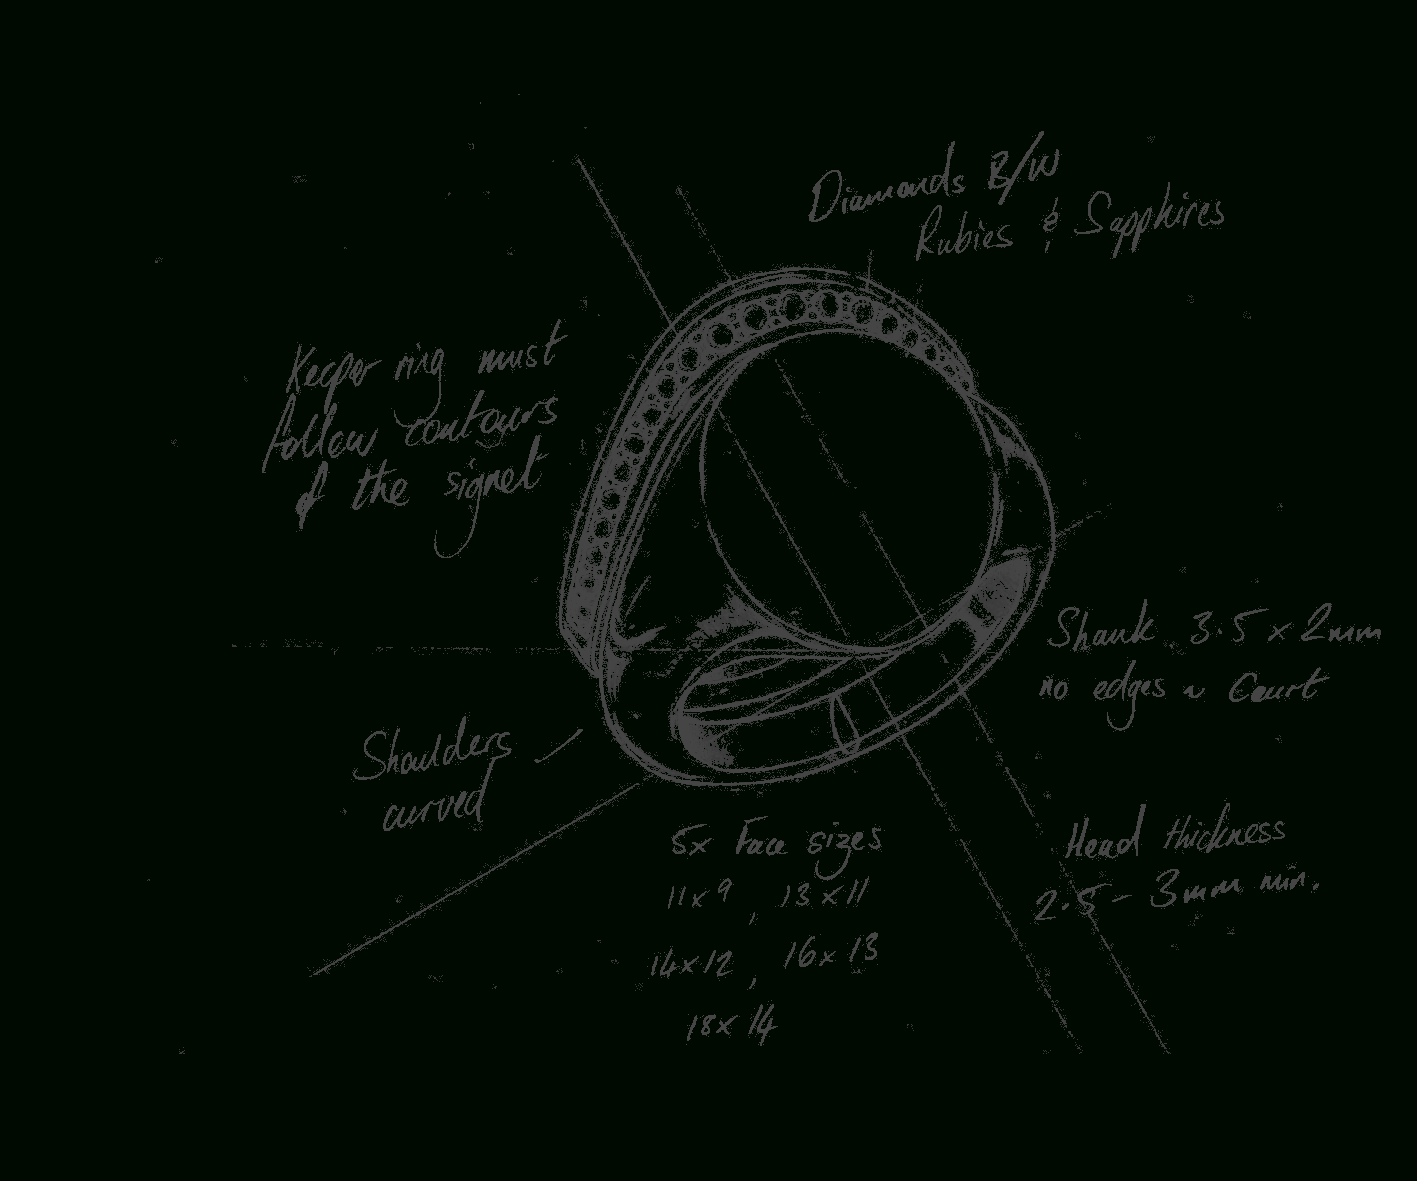 Diamonds B/W
Rubies & Sapphires
Keeper ring must
follow contours
of the signet
Shank 3.5 x 2mm
no edges ~ Court
Shoulders
curved
5x Face sizes
11x9, 13x11
14x12, 16x13
18x14
Head thickness
2.5 - 3mm min.